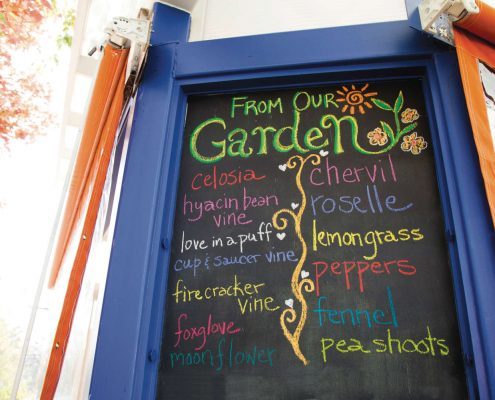 From Our
Garden
celosia
hyacin bean
vine
love in a puff
cup & saucer vine
firecracker
vine
foxglove
moonflower
chervil
roselle
lemongrass
peppers
fennel
pea shoots